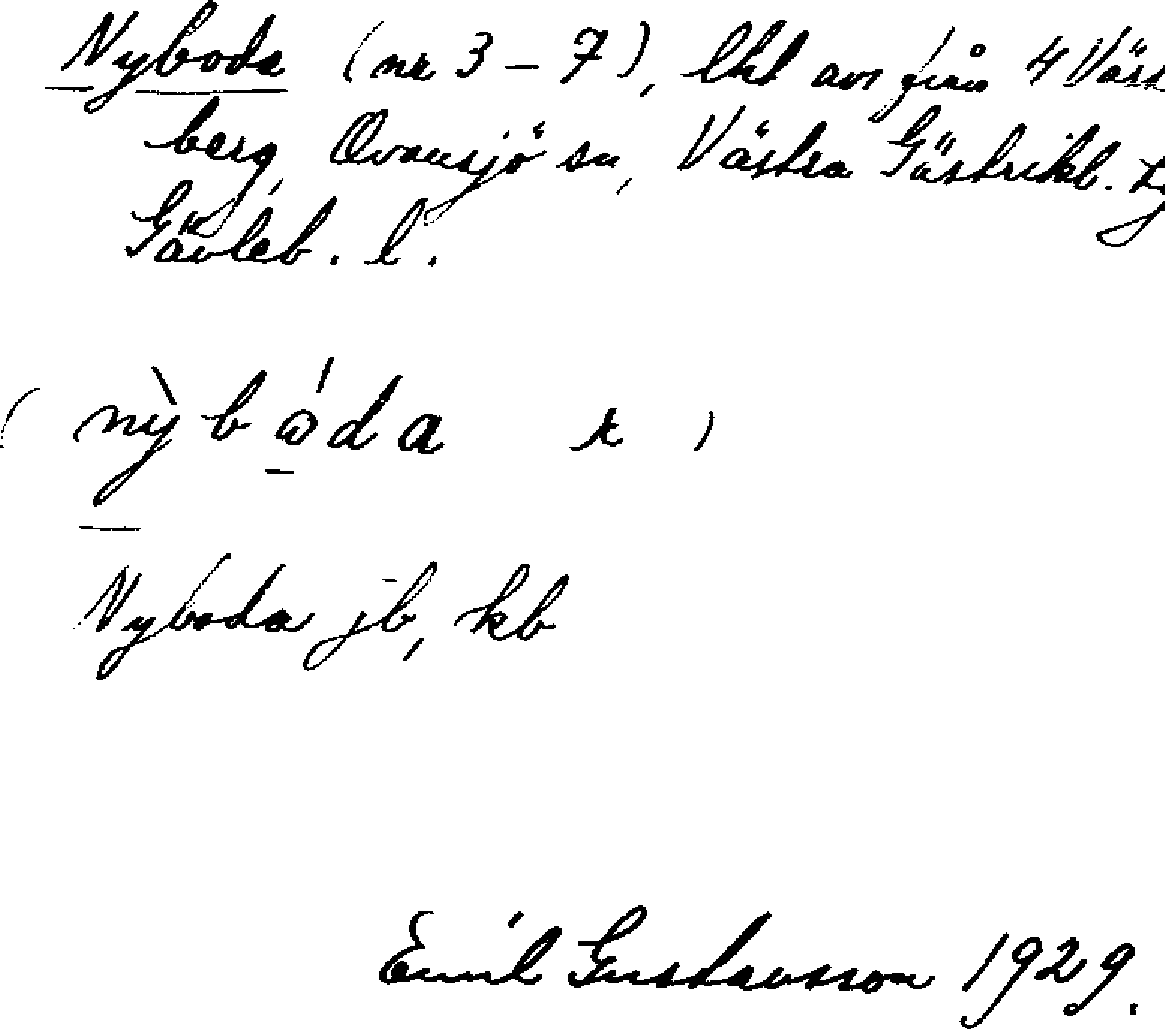 Nyboda (nr 3-7), lht avs från 4 Väst
berg, Ovansjö sn, Västra Gästrikl.
Gävleb. l.
( nỳbώ̲da r )
Nyboda jb, kb
Emil Gustavsson 1929.